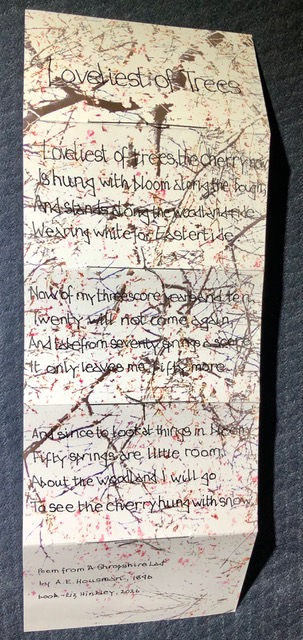 Loveliest of Trees
Loveliest of trees, the cherry now
Is hung with bloom along the bough,
And stands along the woodland ride
Wearing white for Eastertide.
Now of my threescore years and ten,
Twenty will not come again,
And take from seventy springs a score,
It only leaves me fifty more.
And since to look at things in bloom
Fifty springs are little room,
About the woodland I will go
To see the cherry hung with snow.
Poem from A Shropshire Lad
by A. E. Housman 1896
Book - Liz Hinkley, 2026